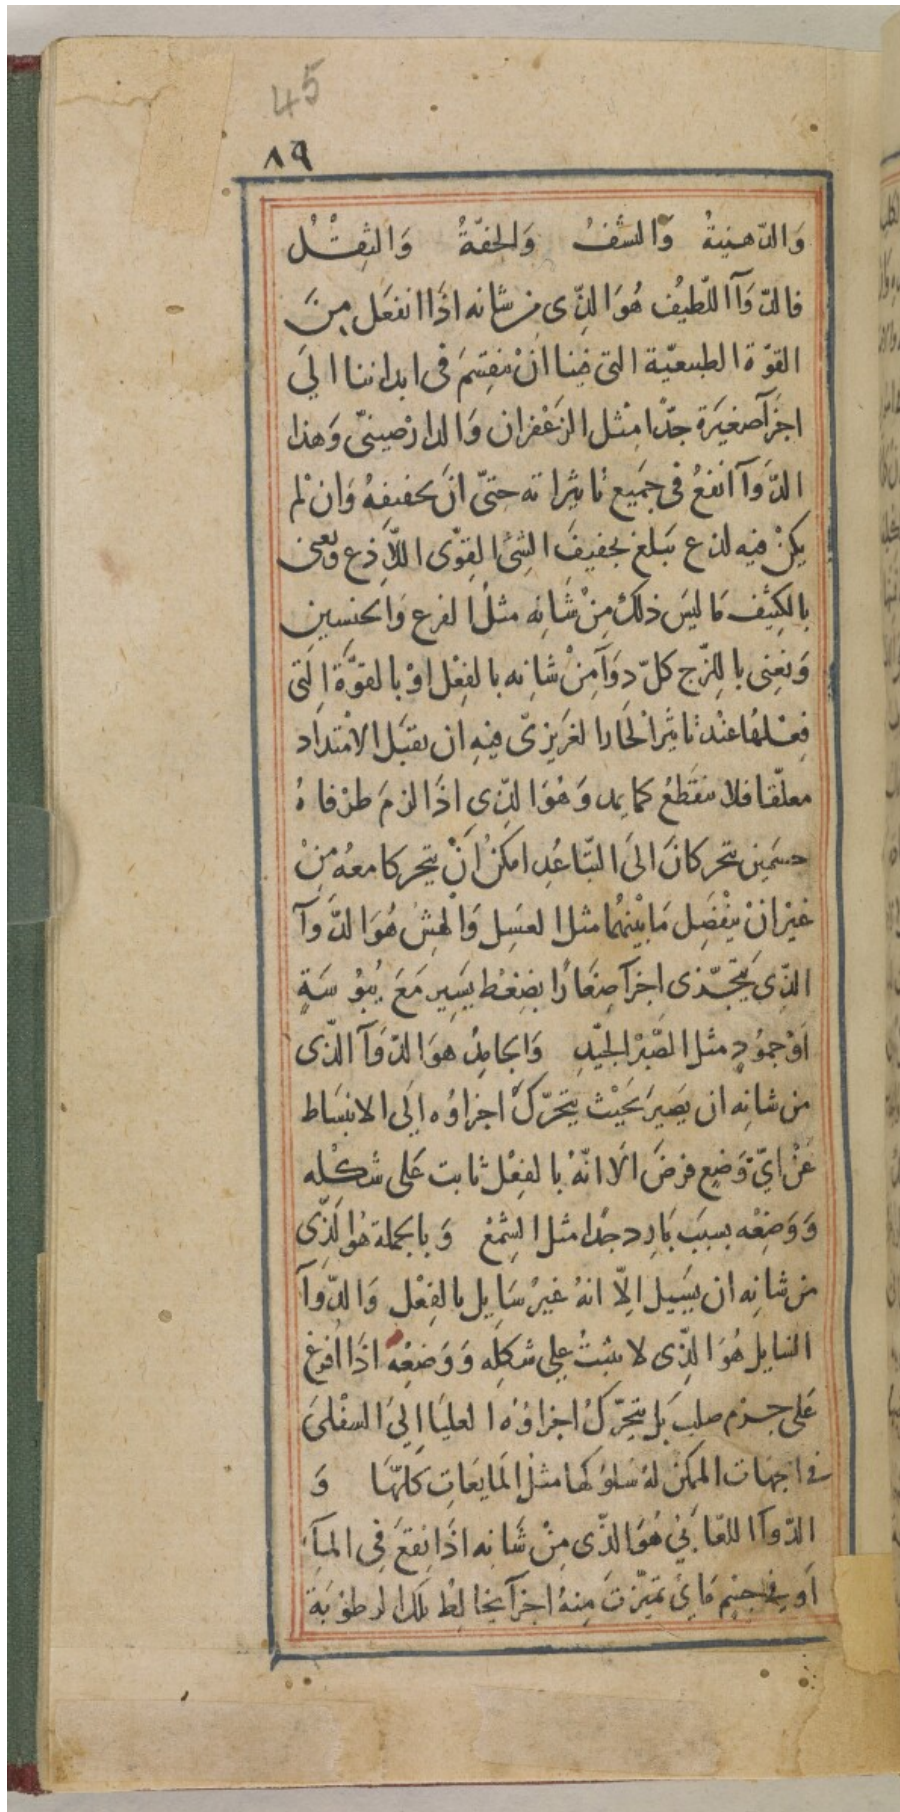 45
٨٩
وَالدّهنيةُ وَالنشفُ وَالخفّةُ وَالثِقْلُ
فالدّوَآ اللّطيُف هُوَ الذِّى من شانه اذَا انفعَل مِنَ
القوّة الطبيعيّة التى فينا اَنْ ينقسَمَ فى ابداننا الىَ
اجزَآ صغيَرة جدّا مثل الزعْفران وَالدارْصينىّ وَهذا
الدَّوَآ انفعُ فى جَميع تاثيراته حتىّ انَّ تجفيفهُ وَان لم
يكنْ فيه لذع يَبلغ تجفيفَ الشئ القوِّى اللّاذع ونعنى
بالكِثيف مَا ليسَ ذلكَ مِنْ شَانِه مثلُ القرع وَالجنسين
وَنعِنى باللِزّج كلّ دوَآ مِنْ شانه بالفِعْل اوْ بالقوَّة التى
فِعْلهُا عنْد تاثيرالحَار الغرَيزىّ فيهِ ان يقبَل الامْتداد
معلّقا فلا ينقَطعُ كما يمد وَهُوَ الذِى اذَا لزمَ طرْفاهُ
جسمَين يتحركانَ الىَ التّباعُدِ امكنُ اَنْ يتحركا معهُ مِنْ
غيْر انْ ينْفَصِل مَا بيْنهُما مثل العسَل وَالهِشُ هُوَ الدَّوَآ
الذِّى يَتجَّزى اجزآ صغَارًا بضغْط يسَير مَعَ يُبُوسَةٍ
اَوْ جموُدٍ مثل الصّبْر الجيّدِ وَالجامِدُ هوَ الدّوَآ الذّى
من شانِه ان يَصيرَ بحَيْث يتحرّكَ اجزاؤه الىَ الانبَساط
عَنْ اىّ وَضِع فرضَ اَلّا انّهُ بالفِعْل ثابت عَلى شكْله
وَوَضِعْه بسببَ بَارِد جدًا مثل الشِمْعْ وَبالجملة هُوَ الذِّى
من شانِه ان يَسيل اِلّا انهُ غيْر سَايل بالفِعْل وَالدَّوَآ
السَايل هُوَ الذِّى لا يثبْتُ على شكِله وَوَضعِه اذَا اُفرغ
عَلى جرْم صلب بَل يتحرّكُ اجزاؤهُ العليَا الىَ السفْلىَ
فى الجهات الممكنْ لهُ سُلوُكها مثْل المَايعَاتِ كلّهَا وَ
الدّوَآ اللعَابَىّ هُوَ الذّى مِنْ شَانِه اذَا نِقعَ فِى المآِ
اَو فى جسْم مَائ تميّزتَ مِنهُ اجزآ يخالِطْ تلك الرطوُبَة